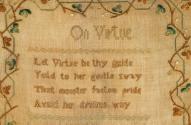 On Virtue
Let Virtue be thy guide
Yeld to her gentle sway
That monster fashion pride
Avoid her devious way